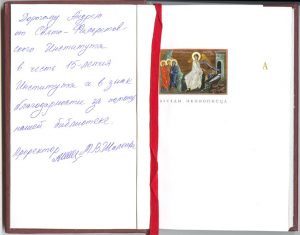 Дорогому Андрею
от Свято-Филаретов-
ского Института
в честь 15-летия
Института и в знак
благодарности за помощь
нашей библиотеке.
Проректор
БЕСЕДЫ ИКОНОПИСЦА
А